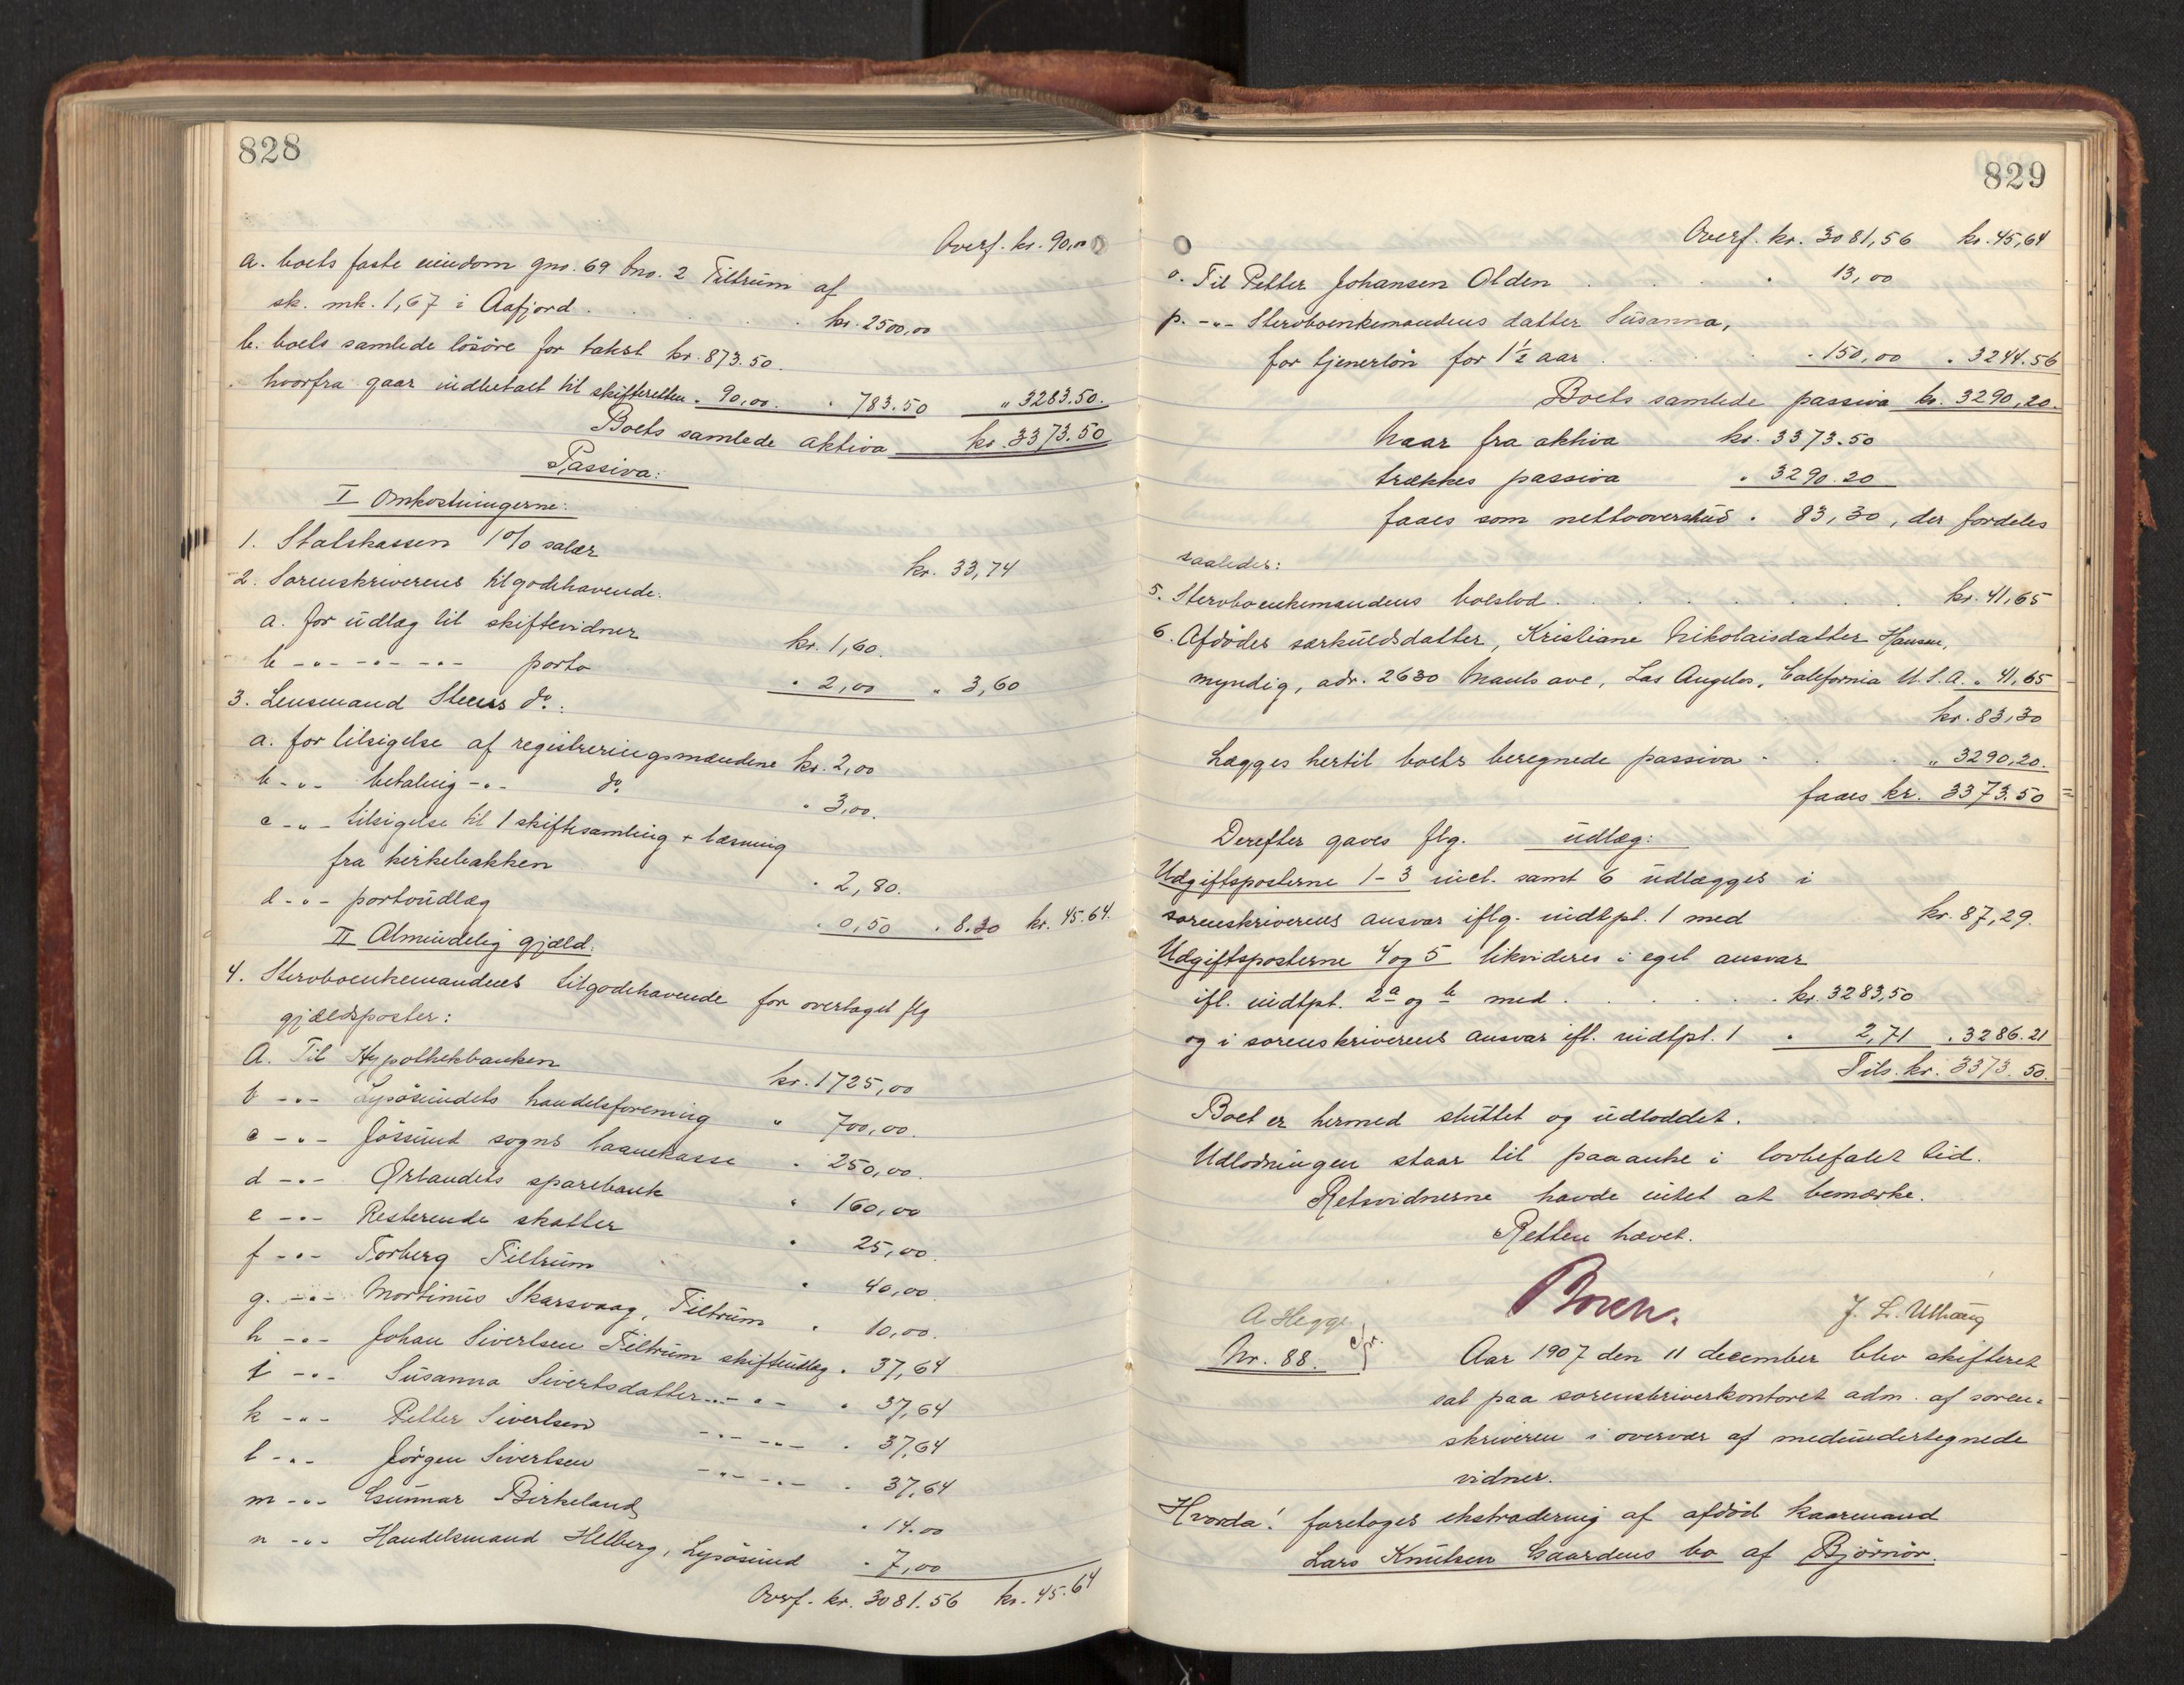 828
Overf. kr. 90,00
a. boets faste eiendom gno. 69 bno. 2 Tiltrum af
sk. mk. 1,67 i Aafjord . . . . . kr. 2500,00
b. boets samlede løsøre for takst kr. 873.50.
hvorfra gaar indbetalt til skifteretten " 90,00. " 783.50 " 3283.50.
Boets samlede aktiva kr. 3373.50
Passiva:
I Omkostningerne:
1. Statskassen 1% salær kr. 33,74
2. Sorenskriverens tilgodehavende:
a. for udlæg til skiftevidner kr. 1,60.
b -"- -"- -"- porto " 2,00 " 3,60
3. Lensmand Steens do.:
a. for tilsigelse af registreringsmændene kr. 2,00
b -"- betaling -"- do. " 3,00.
c -"- tilsigelse til 1 skiftesamling + læsning
fra kirkebakken " 2,80.
d -"- portoudlæg " 0,50 " 8.30 kr. 45.64.
II Almindelig gjæld:
4. Stervboenkemandens tilgodehavende for overtaget flg
gjældsposter:
a. Til Hypothekbanken kr. 1725,00
b -"- Lysøsundets handelsforening " 700,00.
c -"- Jøssund sogns laanekasse " 250,00.
d -"- Ørlandets sparebank " 160,00
e -"- Resterende skatter " 25,00
f -"- Torberg Tiltrum " 40,00
g. -"- Mortinus Skarsvaag, Tiltrum " 10,00.
h -"- Johan Sivertsen Tiltrum skifteudlæg " 37,64
i -"- Susanna Sivertsdatter -"- -"- " 37,64
k -"- Petter Sivertsen -"- -"- " 37,64
l -"- Jørgen Sivertsen -"- -"- " 37,64
m -"- Gunnar Birkeland " 14.00
n -"- Handelsmand Helberg, Lysøsund " 7,00
Overf. kr. 3081.56 kr. 45.64
829
Overf. kr. 3081,56 kr. 45,64
o. Til Petter Johansen Olden . . . " 13,00
p. -"- Stervboenkemandens datter Susanna,
for tjenerløn for 1½ aar . . . " 150,00 " 3244.56
Boets samlede passiva kr. 3290,20.
Naar fra aktiva kr. 3373.50
trækkes passiva " 3290.20
faaes som nettooverskud " 83,30, der fordeles
saaledes:
5. Stervboenkemandens boeslod . . . . . kr. 41,65
6. Afdødes særkuldsdatter, Kristiane Nikolaisdatter Hansen,
myndig, adr. 2630 Mauls ave, Los Angelos, California U.S.A. " 41,65
kr. 83,30
Lægges hertil boets beregnede passiva . . . " 3290,20.
faaes kr. 3373.50
Derefter gaves flg. udlæg:
Udgiftsposterne 1-3 incl. samt 6 udlægges i
sorenskriverens ansvar iflg. indtpt. 1 med kr. 87,29.
Udgiftsposterne 4 og 5 likvideres i eget ansvar
ifl. indtpt. 2a og b med . . . . kr. 3283,50
og i sorenskriverens ansvar ifl. indtpt. 1 " 2,71 " 3286.21
Tils. kr. 3373.50.
Boet er hermed sluttet og udloddet.
Udlodningen staar til paaanke i lovbefalet tid.
Retsvidnerne havde intet at bemærke.
Retten hævet.
Boven.
A Hegge J. L. Uthaug
Nr. 88.
Aar 1907 den 11 december blev skifteret
sat paa sorenskriverkontoret adm. af soren=
skriveren i overvær af medundertegnede
vidner.
Hvorda! foretoges ekstradering af afdød kaarmand
Lars Knutsen Gaardens bo af Bjørnør.